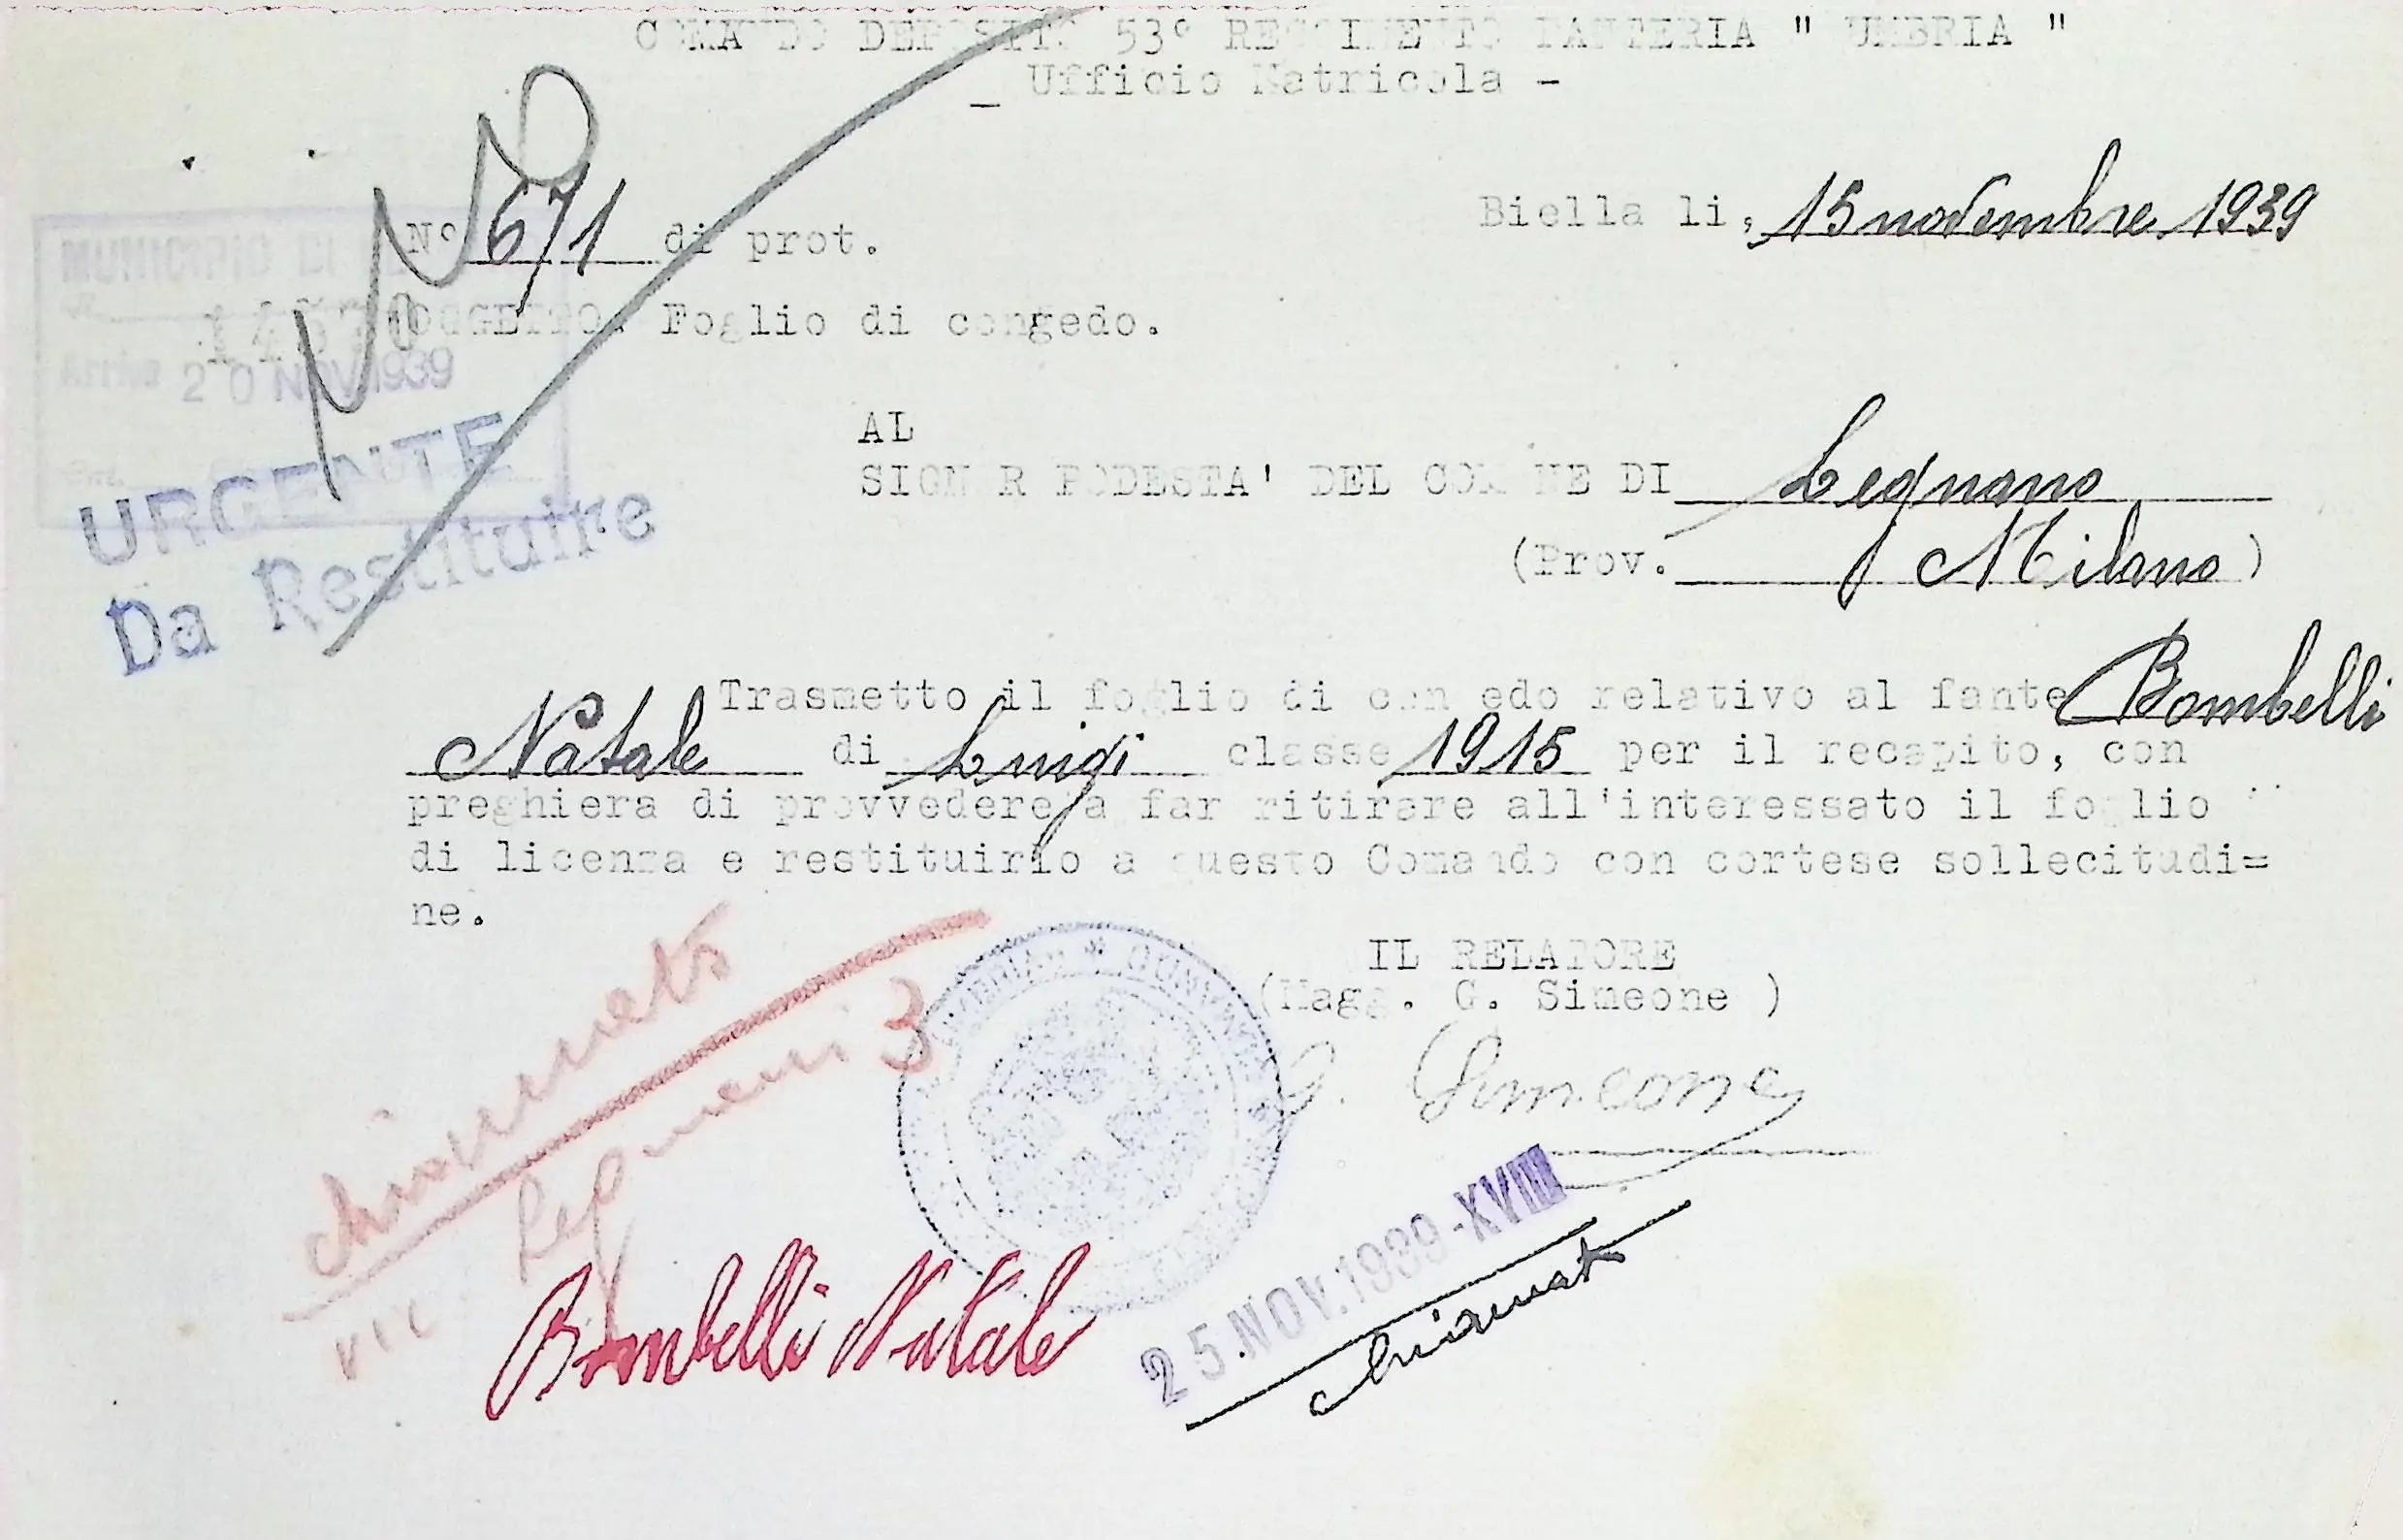 COMANDO DEPOSITO 53° REGGIMENTO FANTERIA " UMBRIA "
_ Ufficio Matricola -
Biella li, 15 novembre 1939
N° 671 di prot.
MUNICIPIO DI
OGGETTO. Foglio di congedo.
Arrivo 20 NOV 1939
AL
SIGNOR PODESTA' DEL COMUNE DI Legnano
(Prov. Milano)
URGENTE
Da Restituire
Trasmetto il foglio di congedo relativo al fante Bombelli
Natale di Luigi classe 1915 per il recapito, con
preghiera di provvedere a far ritirare all'interessato il foglio
di licenza e restituirlo a questo Comando con cortese sollecitudi=
ne.
IL RELATORE
(Magg. G. Simeone )
G. Simeone
chiamato
3
25.NOV.1939-XVIII
chiamato
Bombelli Natale